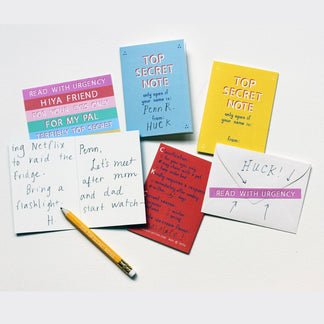 READ WITH URGENCY
HIYA FRIEND
FOR YOUR EYES ONLY
FOR MY PAL
TERRIBLY TOP SECRET
TOP
SECRET
NOTE
only open if
your name is:
Penn R.
from:
HUCK
TOP
SECRET
NOTE
only open if
your name is:
from:
ing Netflix
to raid the
fridge.
Bring a
flashlight.
H
Penn,
Let's meet
after mom
and dad
start watch-
HUCK!
READ WITH URGENCY